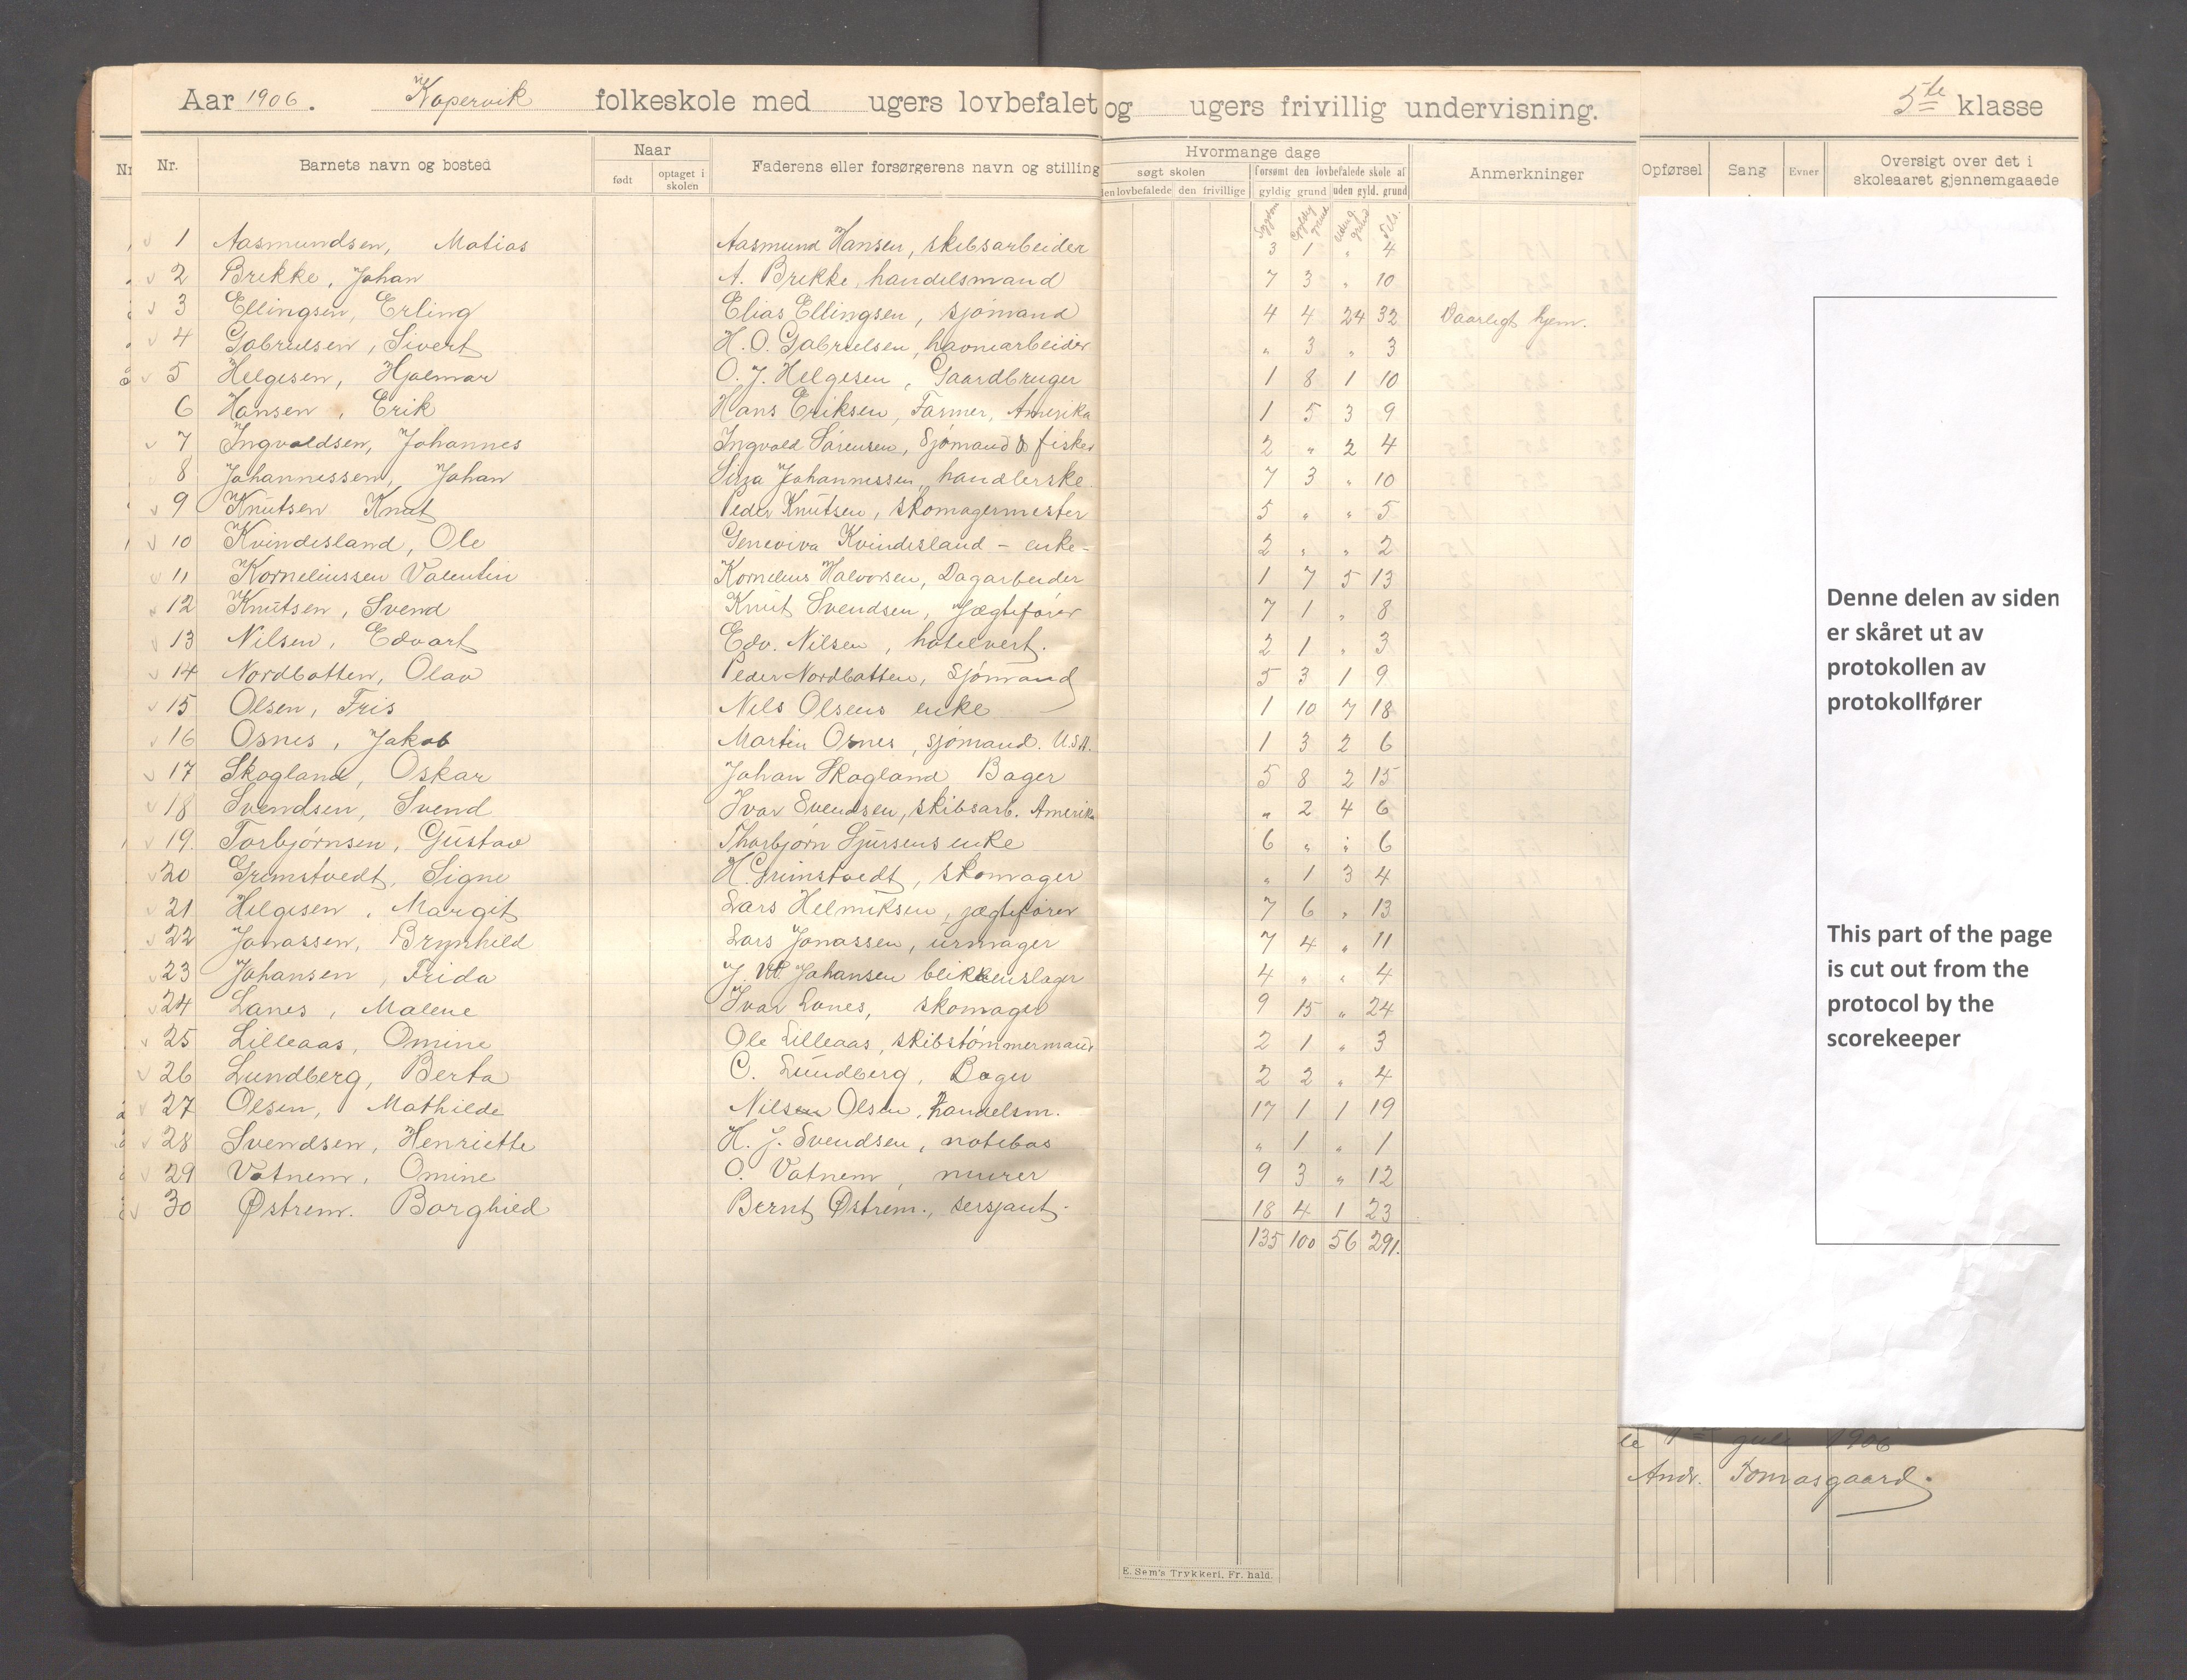 Aar 1906. Kopervik folkeskole med ugers lovbefalet og ugers frivillig undervisning. 5te klasse
Nr. Barnets navn og bosted Naar født optaget i skolen Faderens eller forsørgerens navn og stilling Hvormange dage søgt skolen den lovbefalede den frivillige forsømt den lovbefalede skole af gyldig grund uden gyld. grund Anmerkninger Opførsel Sang Evner Oversigt over det i skoleaaret gjennemgaaede
1 Aasmundsen, Matias Aasmund Hansen, skibsarbeider 3 1 " 4
2 Brekke, Johan A. Brekke, handelsmand 7 3 " 10
3 Ellingsen, Erling Elias Ellingsen, sjømand 4 4 24 32 Daarligt hjem.
4 Gabrielsen, Sivert H. O. Gabrielsen, havnearbeider " 3 " 3
5 Helgesen, Hjalmar O. J. Helgesen, Gaardbruger 1 8 1 10
6 Hansen, Erik Hans Eriksen, Farmer, Amerika 1 5 3 9
7 Ingvaldsen, Johannes Ingvald Sørensen, Sjømand & fisker 2 " 2 4
8 Johannessen, Johan Johannessen, handlerske 7 3 " 10
9 Knutsen Knut Peder Knutsen, skomagermester 5 " " 5
10 Kvindesland, Ole Geneviva Kvindesland - enke - 2 " " 2
11 Korneliussen Valentin Kornelius Halvorsen, Dagarbeider 1 7 5 13
12 Knutsen, Svend Knut Svendsen, Jægtefører 7 1 " 8
13 Nilsen, Edvart Edv. Nilsen, hotelvert. 2 1 " 3
14 Nordbotten, Olav Peder Nordbotten, Sjømand 5 3 1 9
15 Olsen, Fris Nils Olsens enke 1 10 7 18
16 Osnes, Jakob Martin Osnes, sjømand. U.S.A. 1 3 2 6
17 Skogland, Oskar Johan Skogland Bager 5 8 2 15
18 Svendsen, Svend Ivar Svendsen, skibsarb. Amerika " 2 4 6
19. Torbjørnsen, Gustav Thorbjørn Sjursens enke 6 " " 6
20 Grimstvedt, Signe H. Grimstvedt, skomager " 1 3 4
21 Helgesen, Margit Lars Helmiksen, jægtefører 7 6 " 13
22 Jonassen, Brynhild Lars Jonassen, urmager 7 4 " 11
23 Johansen, Frida J. M. Johansen blikkenslager 4 " " 4
24 Lanes, Malene Ivar Lanes, skomager 9 15 " 24
25 Lilleaas, Omine Ole Lilleaas, skibstømmermand 2 1 " 3
26 Lundberg, Berta C. Lundberg, Bager 2 2 " 4
27 Olsen, Mathilde Nilsen Olsen, handelsm. 17 1 1 19
28 Svendsen, Henriette H. J. Svendsen, notebas " 1 " 1
29 Vatnem, Omine O. Vatnem, murer 9 3 " 12
30 Østrem. Borghild Bernt Østrem., sersjant. 18 4 1 23
135 100 56 291.
Denne delen av siden
er skåret ut av
protokollen av
protokollfører
This part of the page
is cut out from the
protocol by the
scorekeeper
juli 1906
Andr. Tomasgaard.
E. Sem's Trykkeri, Fr. hald.